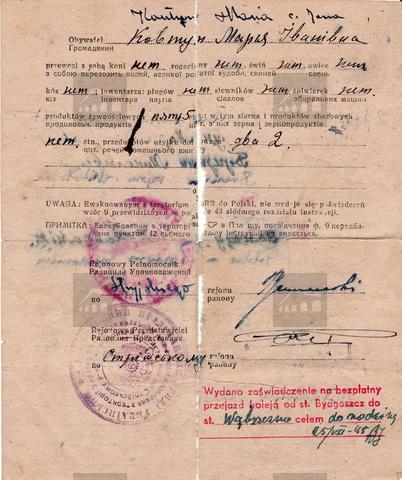 Kowtyn Maria c. Jana
Obywatel
Громадянин Ковтун Марья Іванівна
przewozi z sobą koni нет, rogacizny нет, świń нет, owiec нет
з собою перевозить коней, великої рогатої худоби, свиней овець
kóz нет; inwentarza: pługów нет, siewników нет, żniwiarek нет
кіз інвентаря плугів сівалок збиральних машин
produktów żywnościowych 1 пять 5 w tym ziarna i produktów zbożowych
продовольч. продуктів ц. т. ч. з них зерна і зернопродуктів
нет ctn., przedmiotów użytku domowego два 2.
цнт. речей домашнього вжитку
UWAGA: Ewakuowanym z terytorium RR do Polski, nie wydaje się poświadczeń
wzór 9 przewidzianych p. 42 siódmego rozdziału instrukcji.
ПРИМІТКА: Евакуйованим з території СР в Польщу, посвідчення ф. 9 передба-
чене пунктом 42 сьомого розділу інструкції не видається.
Rejonowy Pełnomocnik
Районний Уповноважений
по Stryjskiego rejonu
району
Rejonowy Przedstawiciel
Районний Представник
по Стрийському rejonu
району
Wydano zaświadczenie na bezpłatny
przejazd koleją od st. Bydgoszcz do
st. Wąbrzeźno celem do rodziny
25/VII-45